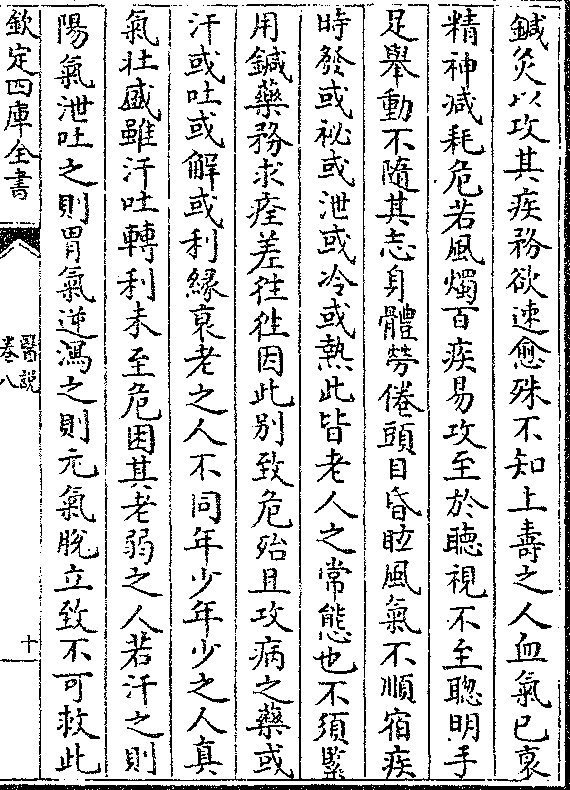 鍼灸以攻其疾務欲速愈殊不知上壽之人血氣已衰
精神減耗危若風燭百疾易攻至於聽視不至聰明手
足舉動不隨其志身體勞倦頭目昏眩風氣不順宿疾
時發或祕或泄或冷或熱此皆老人之常態也不須緊
用鍼藥務求痊差往往因此別致危殆且攻病之藥或
汗或吐或解或利緣衰老之人不同年少年少之人真
氣壯盛雖汗吐轉利未至危困其老弱之人若汗之則
陽氣泄吐之則胃氣逆瀉之則元氣脫立致不可救此
欽定四庫全書
醫説
卷八
十